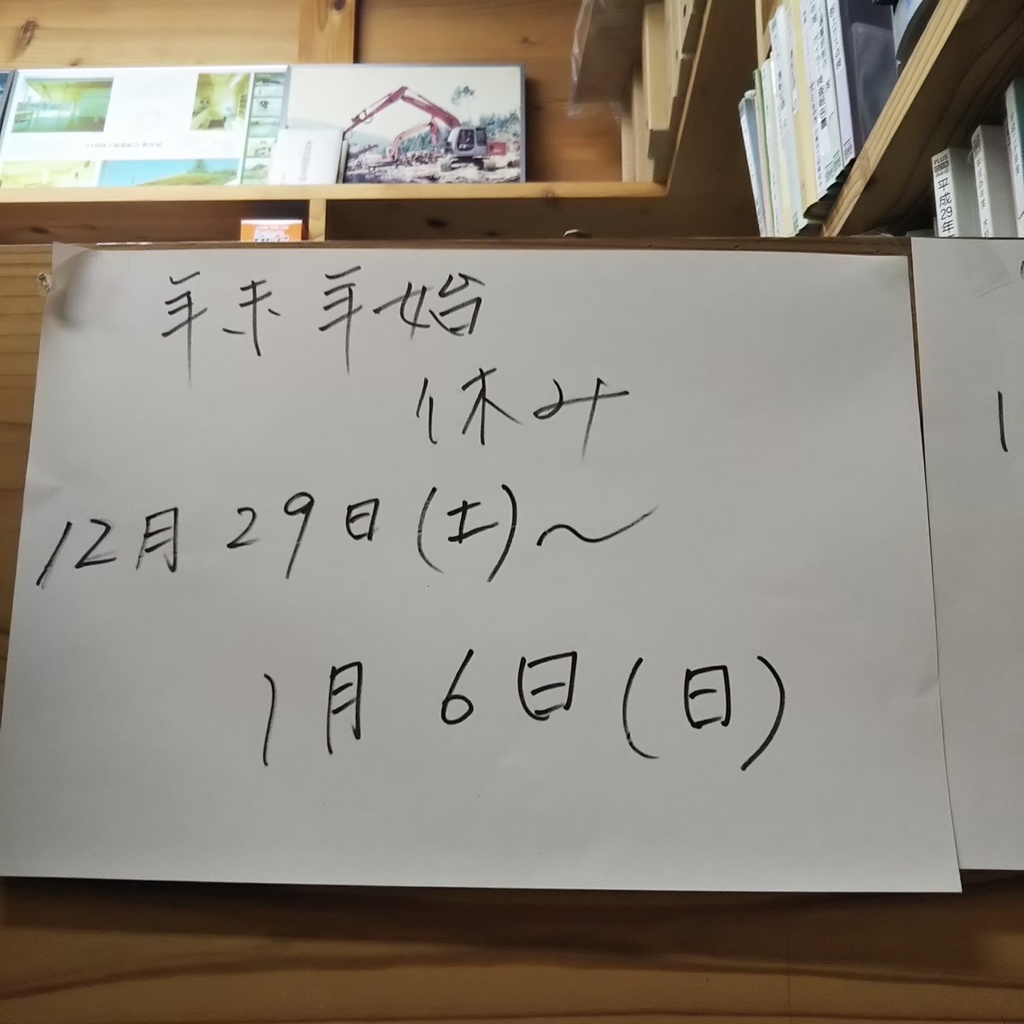 年末年始
休み
12月29日(土)〜
1月6日(日)
平成29年
1